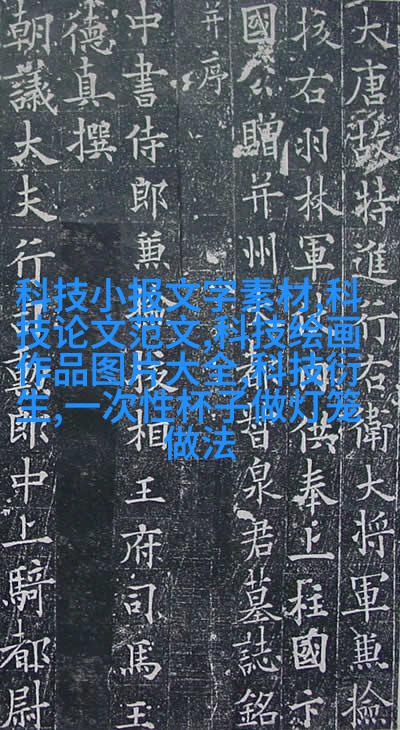 大唐故特進行右衛大將軍兼檢
挍右羽林軍仗內供奉上柱國卞
國公贈并州大都督泉君墓誌銘
并序
中書侍郎兼檢挍相王府司馬王
德真撰
朝議大夫行司勳郎中上騎都尉
科技小报文字素材,科
技论文范文,科技绘画
作品图片大全,科技衍
生,一次性杯子做灯笼
做法